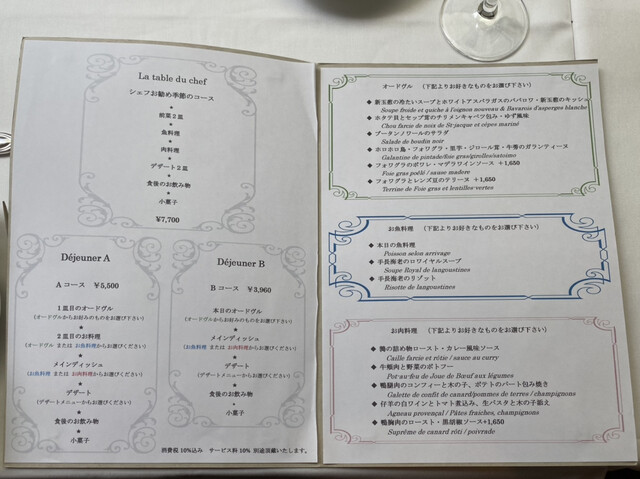 La table du chef
シェフお勧め季節のコース
★
前菜2皿
★
魚料理
★
肉料理
★
デザート2皿
★
食後のお飲み物
★
小菓子
¥7,700
Déjeuner A
Aコース ¥5,500
1皿目のオードヴル
(オードヴルからお好みのものをお選び下さい)
★
2皿目のお料理
(オードヴル または お魚料理からお選びください)
★
メインディッシュ
(お魚料理 または お肉料理からお選びください)
★
デザート
(デザートメニューからお選びください)
★
食後のお飲み物
★
小菓子
Déjeuner B
Bコース ¥3,960
本日のオードヴル
(オードヴルからお好みのものをお選び下さい)
★
メインディッシュ
(お魚料理 または お肉料理からお選びください)
★
デザート
(デザートメニューからお選びください)
★
食後のお飲み物
★
小菓子
消費税10%込み サービス料10% 別途頂戴いたします。
オードヴル (下記よりお好きなものをお選び下さい)
◆ 新玉葱の冷たいスープとホワイトアスパラガスのババロワ・新玉葱のキッシュ
Soupe froide et quiche à l'ognon nouveau & Bavarois d'asperges blanche
◆ ホタテ貝とセップ茸のチリメンキャベツ包み・ゆず風味
Chou farcie de noix de St-jacque et cèpes mariné
◆ ブータンノワールのサラダ
Salade de boudin noir
◆ ホロホロ鳥・フォワグラ・黒芋・ジロール茸・牛香のガランティーヌ
Galantine de pintade/foie gras/girolles/satoimo
◆ フォワグラのポワレ・マデラワインソース +1,650
Foie gras poêlé / sauce madere
◆ フォワグラとレンズ豆のテリーヌ +1,650
Terrine de Foie gras et lentilles-vertes
お魚料理 (下記よりお好きなものをお選び下さい)
◆ 本日の魚料理
Poisson selon arrivage
◆ 手長海老のロワイヤルスープ
Soupe Royal de langoustines
◆ 手長海老のリゾット
Risotte de langoustines
お肉料理 (下記よりお好きなものをお選び下さい)
◆ 鶉の詰め物ロースト・カレー風味ソース
Caille farcie et rôtie / sauce au curry
◆ 牛頬肉と野菜のポトフー
Pot-au-feu de Joue de Bœuf aux légumes
◆ 鴨腿肉のコンフィーと木の子、ポテトのパート包み焼き
Galette de confit de canard/pommes de terres / champignons
◆ 仔羊の白ワインとトマト煮込み、生パスタと木の子添え
Agneau provençal / Pâtes fraiches, champignons
◆ 鴨胸肉のロースト・黒胡椒ソース+1,650
Suprême de canard rôti / poivrade